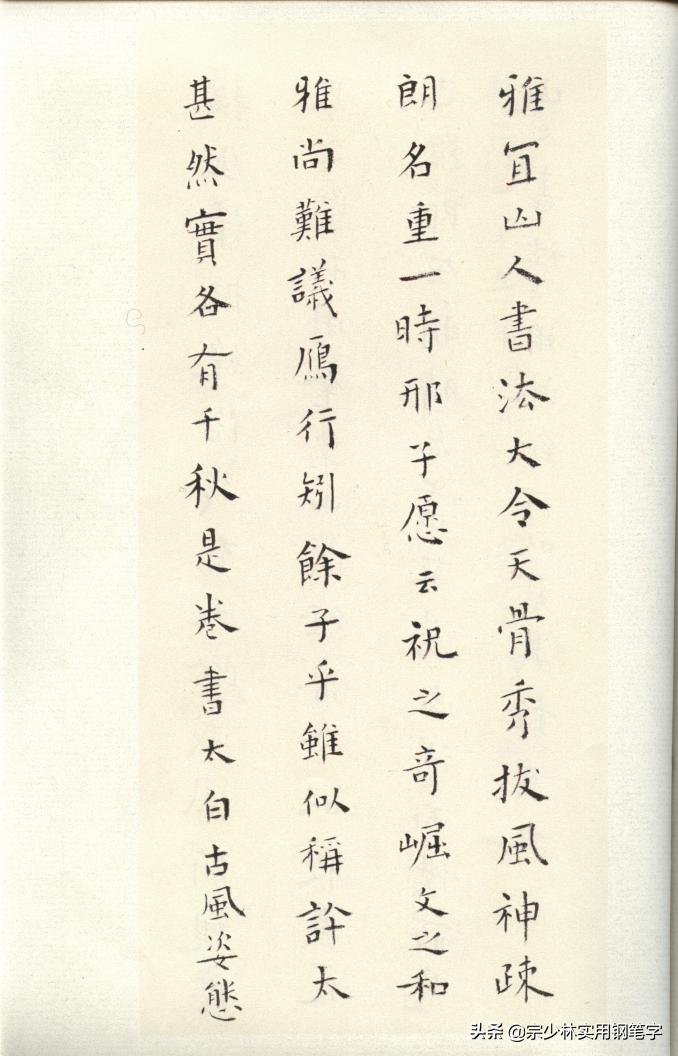 雅宜山人書法大令天骨秀拔風神疎
朗名重一時邢子愿云祝之奇崛文之和
雅尚難議鴈行矧餘子乎雖似稱許太
甚然實各有千秋是卷書太白古風姿態
头条 @宗少林实用钢笔字